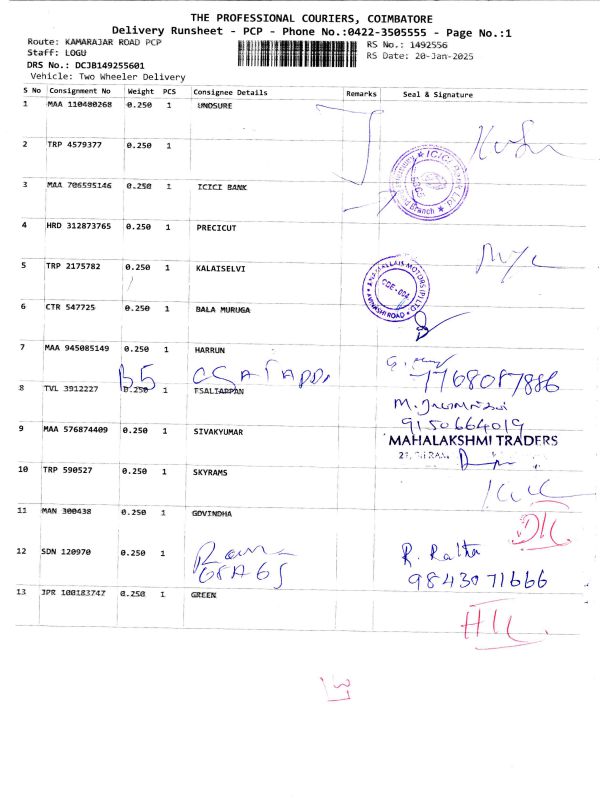 THE PROFESSIONAL COURIERS, COIMBATORE
Delivery Runsheet - PCP - Phone No.:0422-3505555 - Page No.:1
Route: KAMARAJAR ROAD PCP
RS No.: 1492556
Staff: LOGU
RS Date: 20-Jan-2025
DRS No.: DCJB149255601
Vehicle: Two Wheeler Delivery
S No Consignment No Weight PCS Consignee Details Remarks Seal & Signature
1 MAA 110480268 0.250 1 UNOSURE
2 TRP 4579377 0.250 1
3 MAA 706595146 0.250 1 ICICI BANK
ICICI Bank Ltd
Branch
4 HRD 312873765 0.250 1 PRECICUT
5 TRP 2175782 0.250 1 KALAISELVI
ANAMALLAIS MOTORS (P) LTD
CDE-004
AVINASHI ROAD
6 CTR 547725 0.250 1 BALA MURUGA
7 MAA 945085149 0.250 1 HARRUN
7768087886
8 TVL 3912227 0.250 1
B5
9150664019
9 MAA 576874409 0.250 1 SIVAKYUMAR
MAHALAKSHMI TRADERS
10 TRP 590527 0.250 1 SKYRAMS
11 MAN 300438 0.250 1 GOVINDHA
12 SDN 120970 0.250 1
R. Ratha
9843071666
13 JPR 100183747 0.250 1 GREEN
13